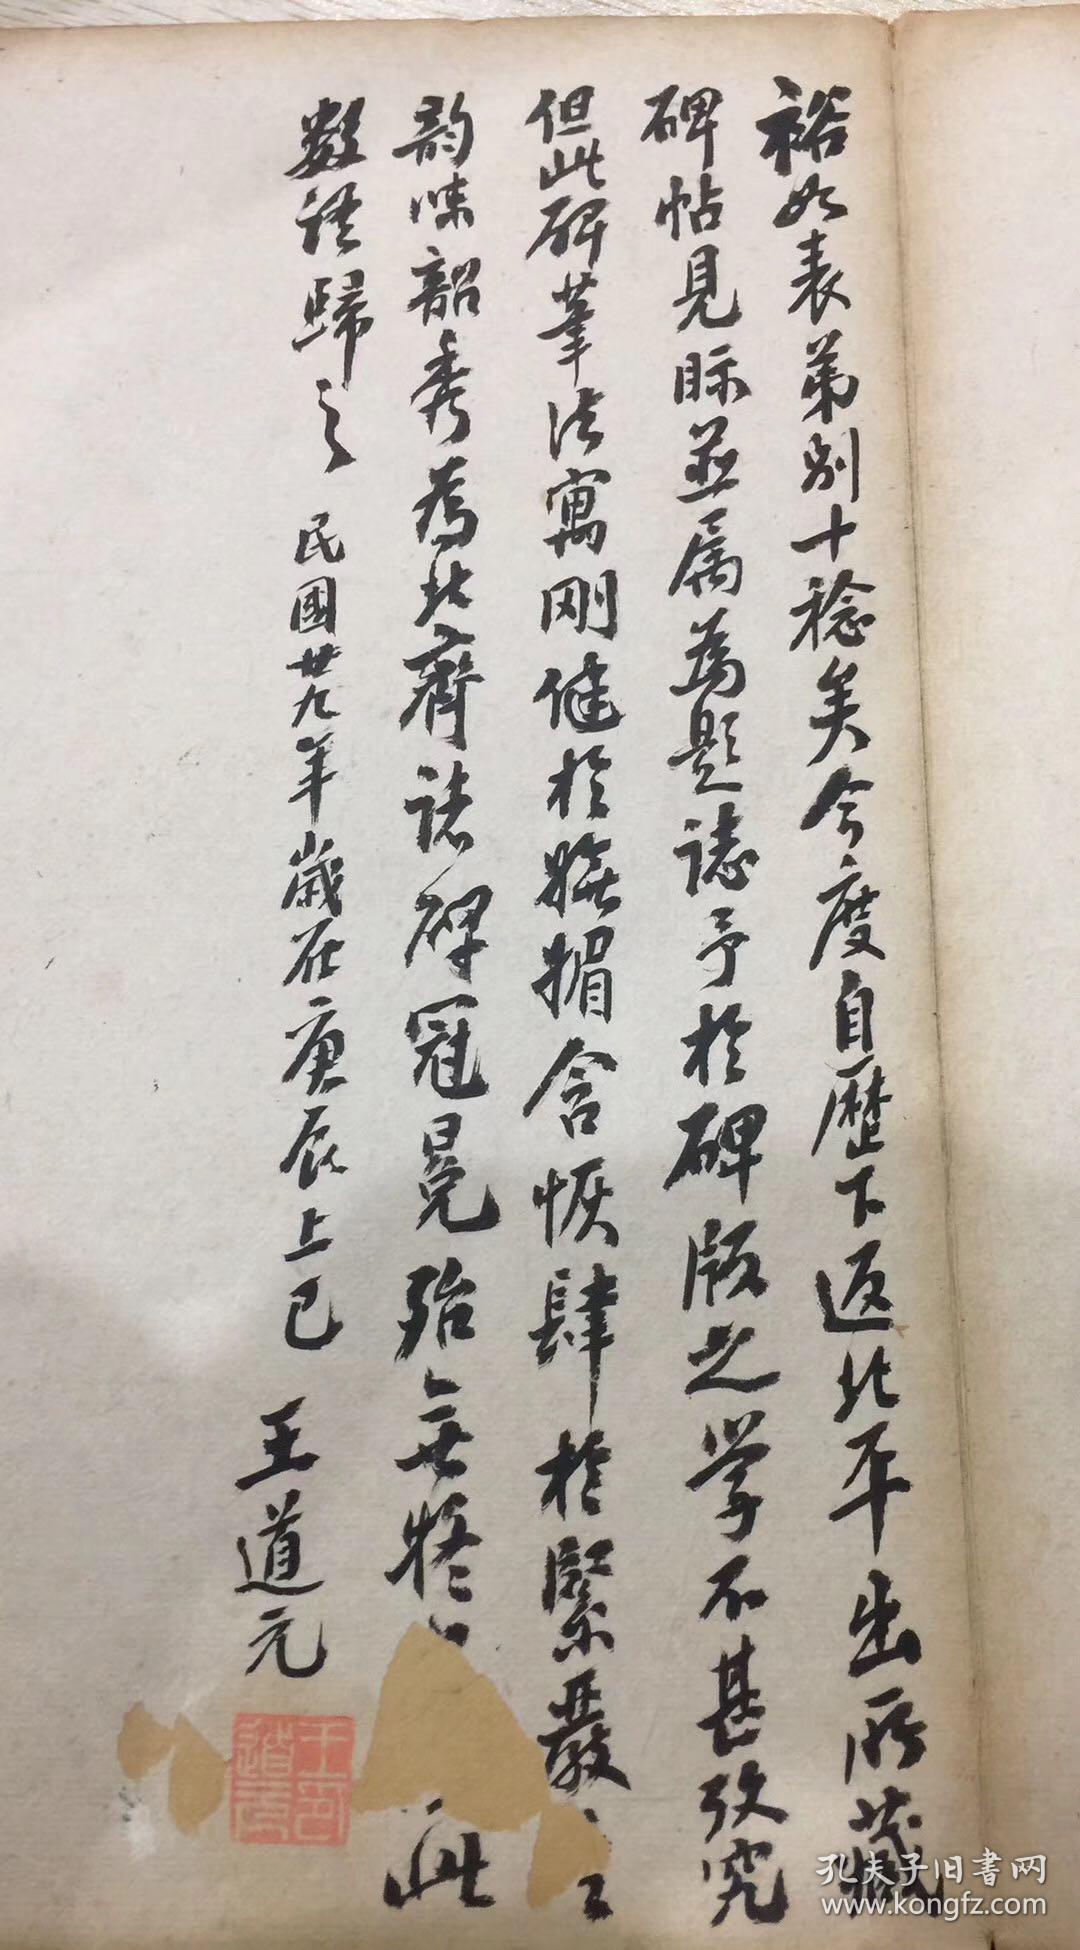 裕如表弟別十稔矣今度自歷下返北平出所藏
碑帖見眎並属為題誌予於碑版之學不甚攷究
但此碑筆法寓剛健於嫵媚含恢肆於緊嚴
韵味韶秀為北齊諸碑冠冕殆無怍 此
數語歸之 民國廿九年歲在庚辰上巳
王道元
王道元印
孔夫子旧書网
www.kongfz.com